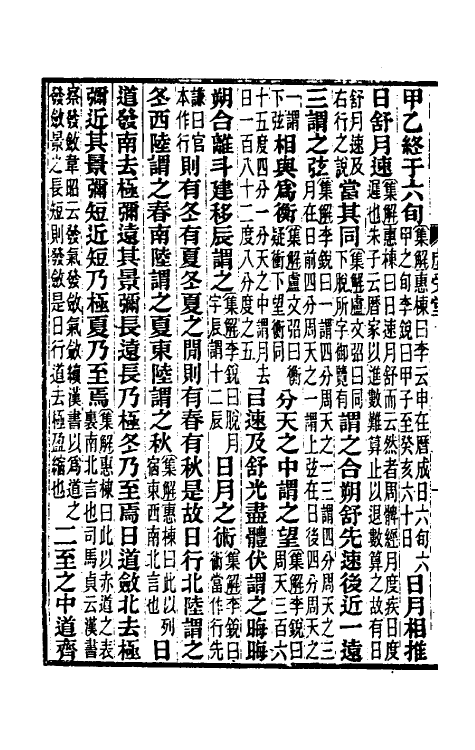 甲乙終于六旬集解惠棟曰李云申在曆成日六旬六甲之旬李銳曰甲子至癸亥六十日日月相推
日舒月速集解惠棟曰日速月舒而云然者周髀經月度疾日度遲也朱子云曆家以進數難算止以退數算之故有日
舒月速及右行之說當其同集解盧文弨曰同下脫所字御覽有謂之合朔舒先速後近一遠
三謂之弦集解李銳曰一謂四分周天之一三謂四分周天之三月在日前四分周天之一謂上弦在日後四分周天之
一謂下弦相與爲衡集解盧文弨曰衡疑衝下望衝同分天之中謂之望集解李銳曰周天三百六
十五度四分一分天之中謂月去日一百八十二度八分度之五㠯速及舒光盡體伏謂之晦晦
朔合離斗建移辰謂之集解李銳曰脫月字辰謂十二辰日月之術集解李銳曰術當作行先
謙曰官本作行則有冬有夏冬夏之閒則有春有秋是故日行北陸謂之
冬西陸謂之春南陸謂之夏東陸謂之秋集解惠棟曰此以列宿東西南北言也日
道發南去極彌遠其景彌長遠長乃極冬乃至焉日道斂北去極
彌近其景彌短近短乃極夏乃至焉集解惠棟曰此以赤道之表裏南北言也司馬貞云漢書
察發斂韋昭云發氣發斂氣斂續漢書以爲道之發斂景之長短則發斂是日行道去極盈縮也二至之中道齊